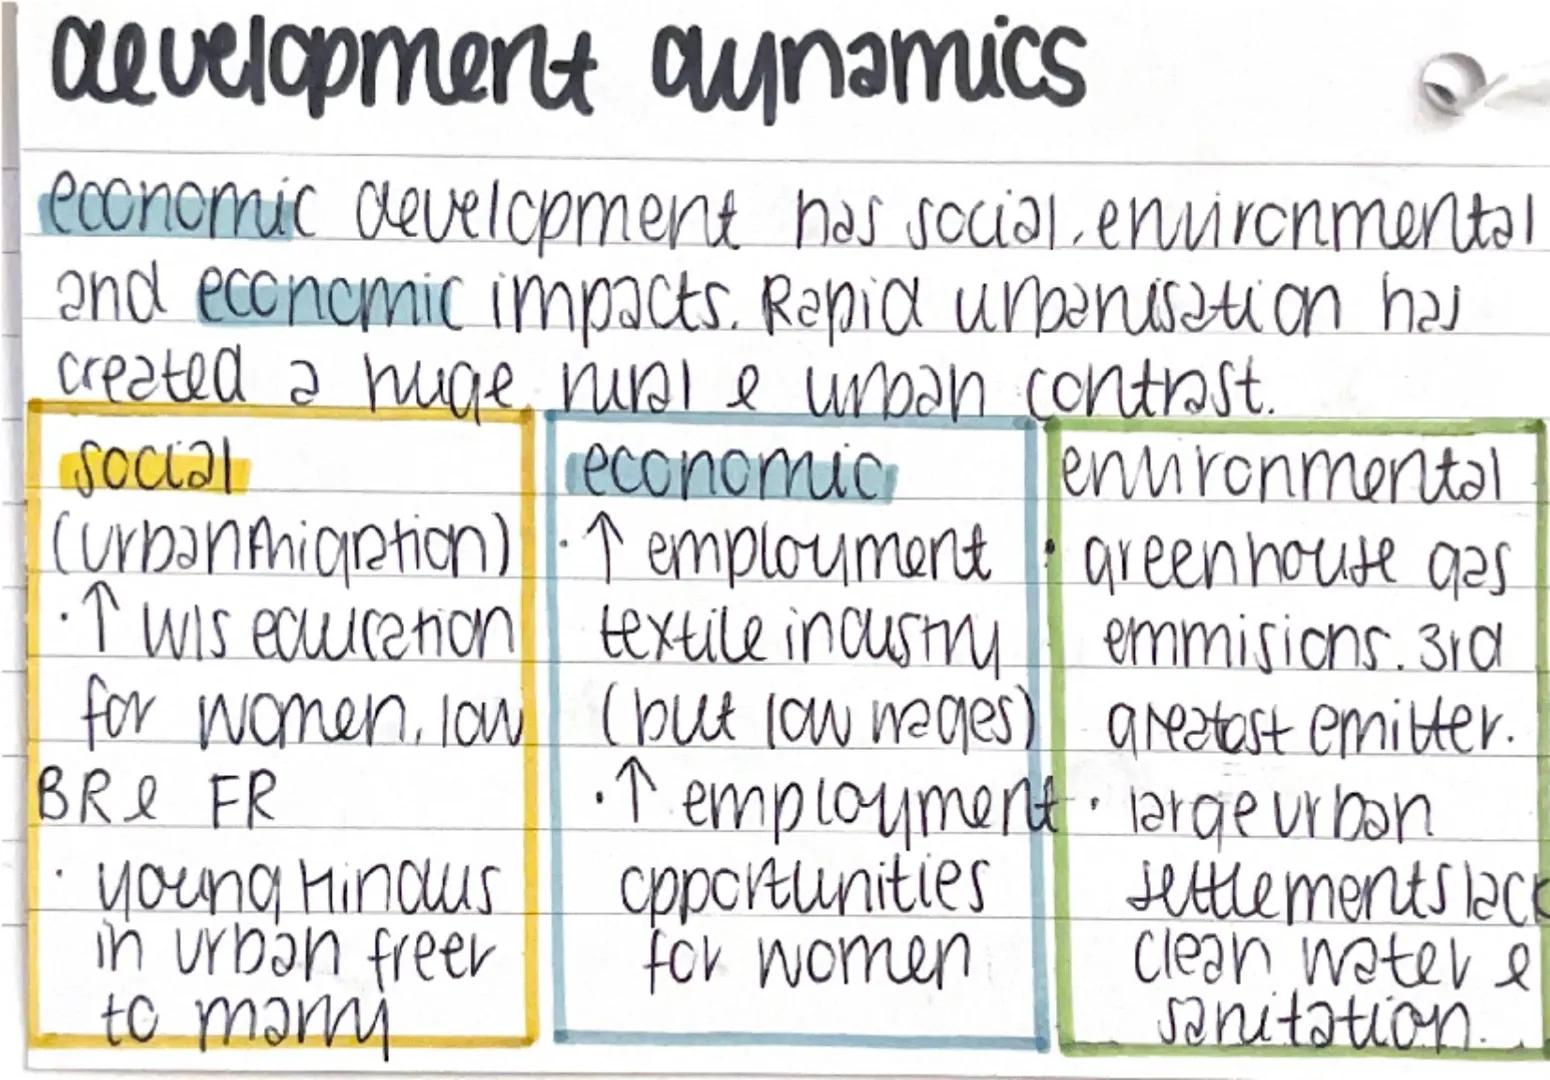 development dynamics
economic development has social, environmental
and economic impacts. Rapid urbanisation has
created a huge rural & urban contrast.
social
(urban migration)
· ↑ wls education
for women, low
BR & FR
· young Hindus
in urban freer
to marry
economic
· ↑ employment
textile industry
(but low wages)
· ↑ employment
opportunities
for women
environmental
· greenhouse gas
emmisions. 3rd
greatest emitter.
· large urban
settlements lack
clean water &
sanitation.